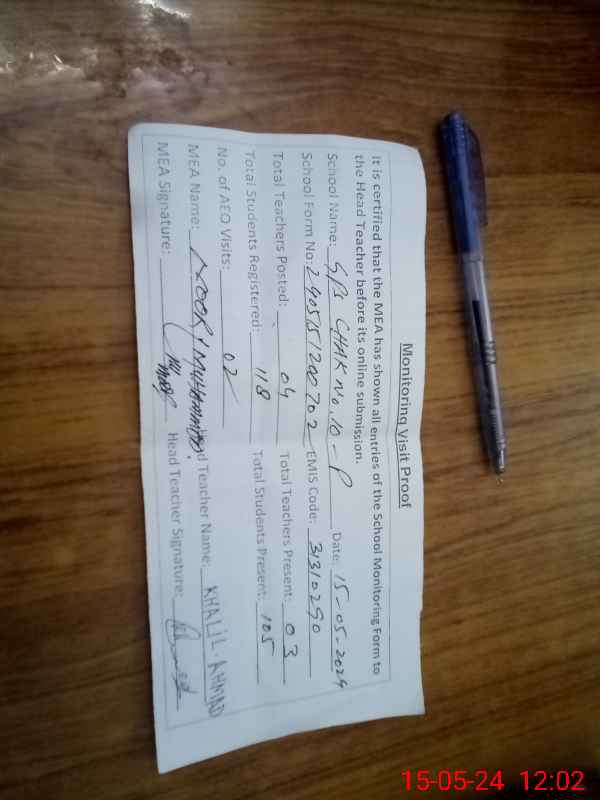 Monitoring Visit Proof
It is certified that the MEA has shown all entries of the School Monitoring Form to
the Head Teacher before its online submission.
School Name: GPS CHAK No. 10-P Date: 15-05-2024
School Form No: EMIS Code: 31310290
Total Teachers Posted: 04 Total Teachers Present: 03
Total Students Registered: 118 Total Students Present: 105
No. of AEO Visits: 02
MEA Name: NOOR MUHAMMAD Head Teacher Name: KHALIL AHMAD
MEA Signature: Head Teacher Signature:
15-05-24 12:02